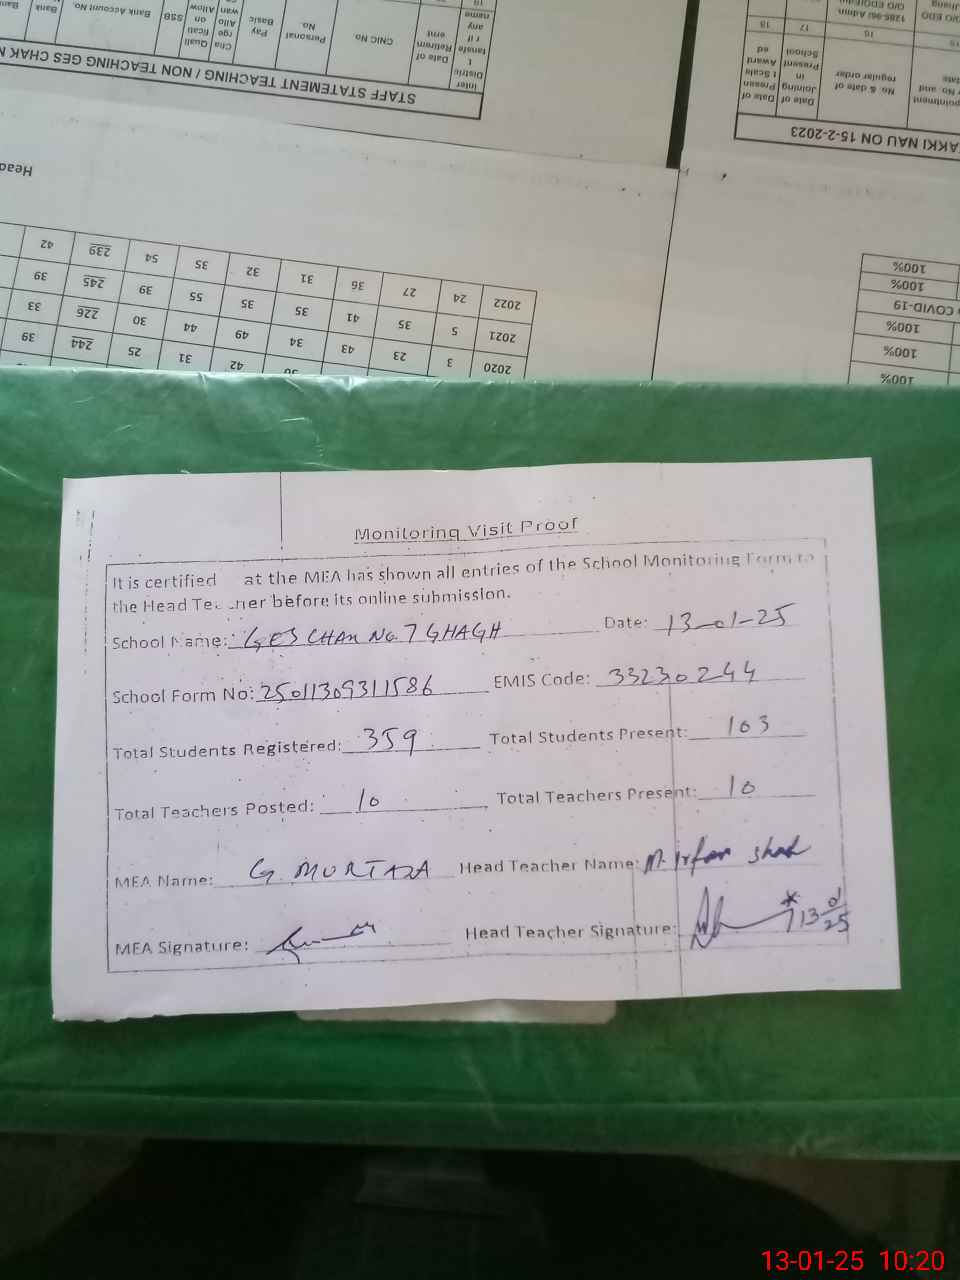 STAFF STATEMENT TEACHING / NON TEACHING GES CHAK N
AKKI NAU ON 15-2-2023
Inter District transfer if any name
Date of Retirem ent
CNIC No
Personal No.
Basic Pay
Cha rge Allo wan
Quali ficati on Allow
SSB
Bank Account No.
Bank
Date of Presen t Scale Award ed
Date of Joining in Present School
No. & date of regular order
18
17
16
Head
2022 24 27 36 31 32 35 54 239 42
2021 5 35 41 35 35 55 39 245 39
2020 3 23 43 34 49 44 30 226 33
42 31 25 244 39
100%
100%
COVID-19
100%
100%
100%
Monitoring Visit Proof
It is certified at the MEA has shown all entries of the School Monitoring Form to
the Head Teacher before its online submission.
School Name: GES CHAK No. 7 GHAGH Date: 13-01-25
School Form No: 25011309311586 EMIS Code: 33230244
Total Students Registered: 359 Total Students Present: 103
Total Teachers Posted: 10 Total Teachers Present: 10
MEA Name: G. MURTAZA Head Teacher Name: M. Irfan Shah
MEA Signature: Head Teacher Signature: 13/01/25
13-01-25 10:20